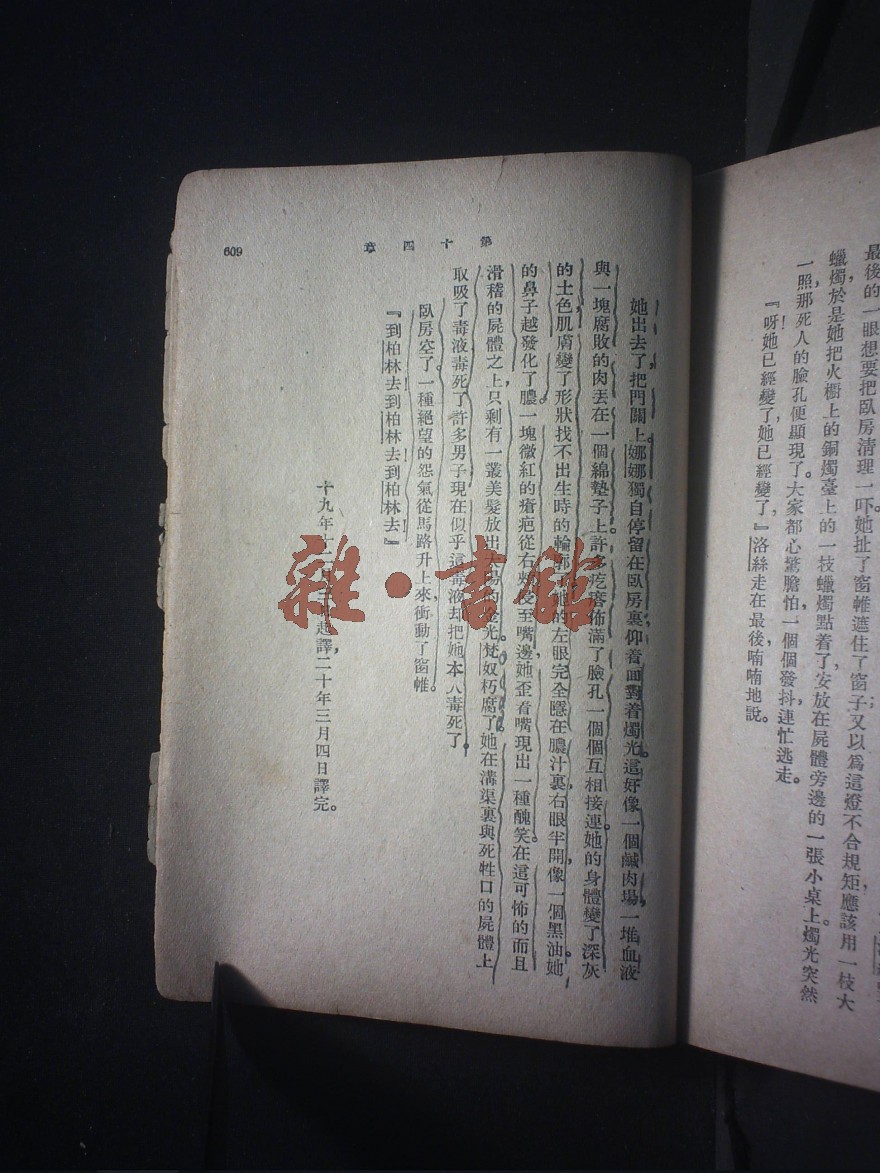 最後的一眼想要把臥房清理一吓。她扯了窗帷遮住了窗子；又以爲這燈不合規矩應該用一枝大
蠟燭，於是她把火櫥上的銅燭臺上的一枝蠟燭點着了，安放在屍體旁邊的一張小桌上。燭光突然
一照，那死人的臉孔便顯現了。大家都心驚膽怕，一個個發抖，連忙逃走。
『呀！她已經變了，她已經變了，』洛絲走在最後，喃喃地說。
第十四章
609
她出去了，把門關上。娜娜獨自停留在臥房裏，仰着面對着燭光。這好像一個鹹肉場，一堆血液
與一塊腐敗的肉丟在一個綿墊子上。許多疙瘩佈滿了臉孔，一個個互相接連。她的身體變了深灰
的土色，肌膚變了形狀，找不出生時的輪廓。她的左眼完全隱在膿汁裏，右眼半開，像一個黑油。她
的鼻子越發化了膿。一塊微紅的瘡疤從右頰侵至嘴邊，她歪着嘴現出一種醜笑。在這可怖的而且
滑稽的屍體之上，只剩有一叢美髮放出太陽的金光。梵奴朽腐了。她在溝渠裏與死牲口的屍體上
取吸了毒液，毒死了許多男子，現在似乎這毒液却把她本人毒死了。
臥房空了。一種絕望的怨氣從馬路升上來，衝動了窗帷。
『到柏林去！到柏林去！到柏林去！』
十九年十二月 起譯，二十年三月四日譯完。
雜·書館